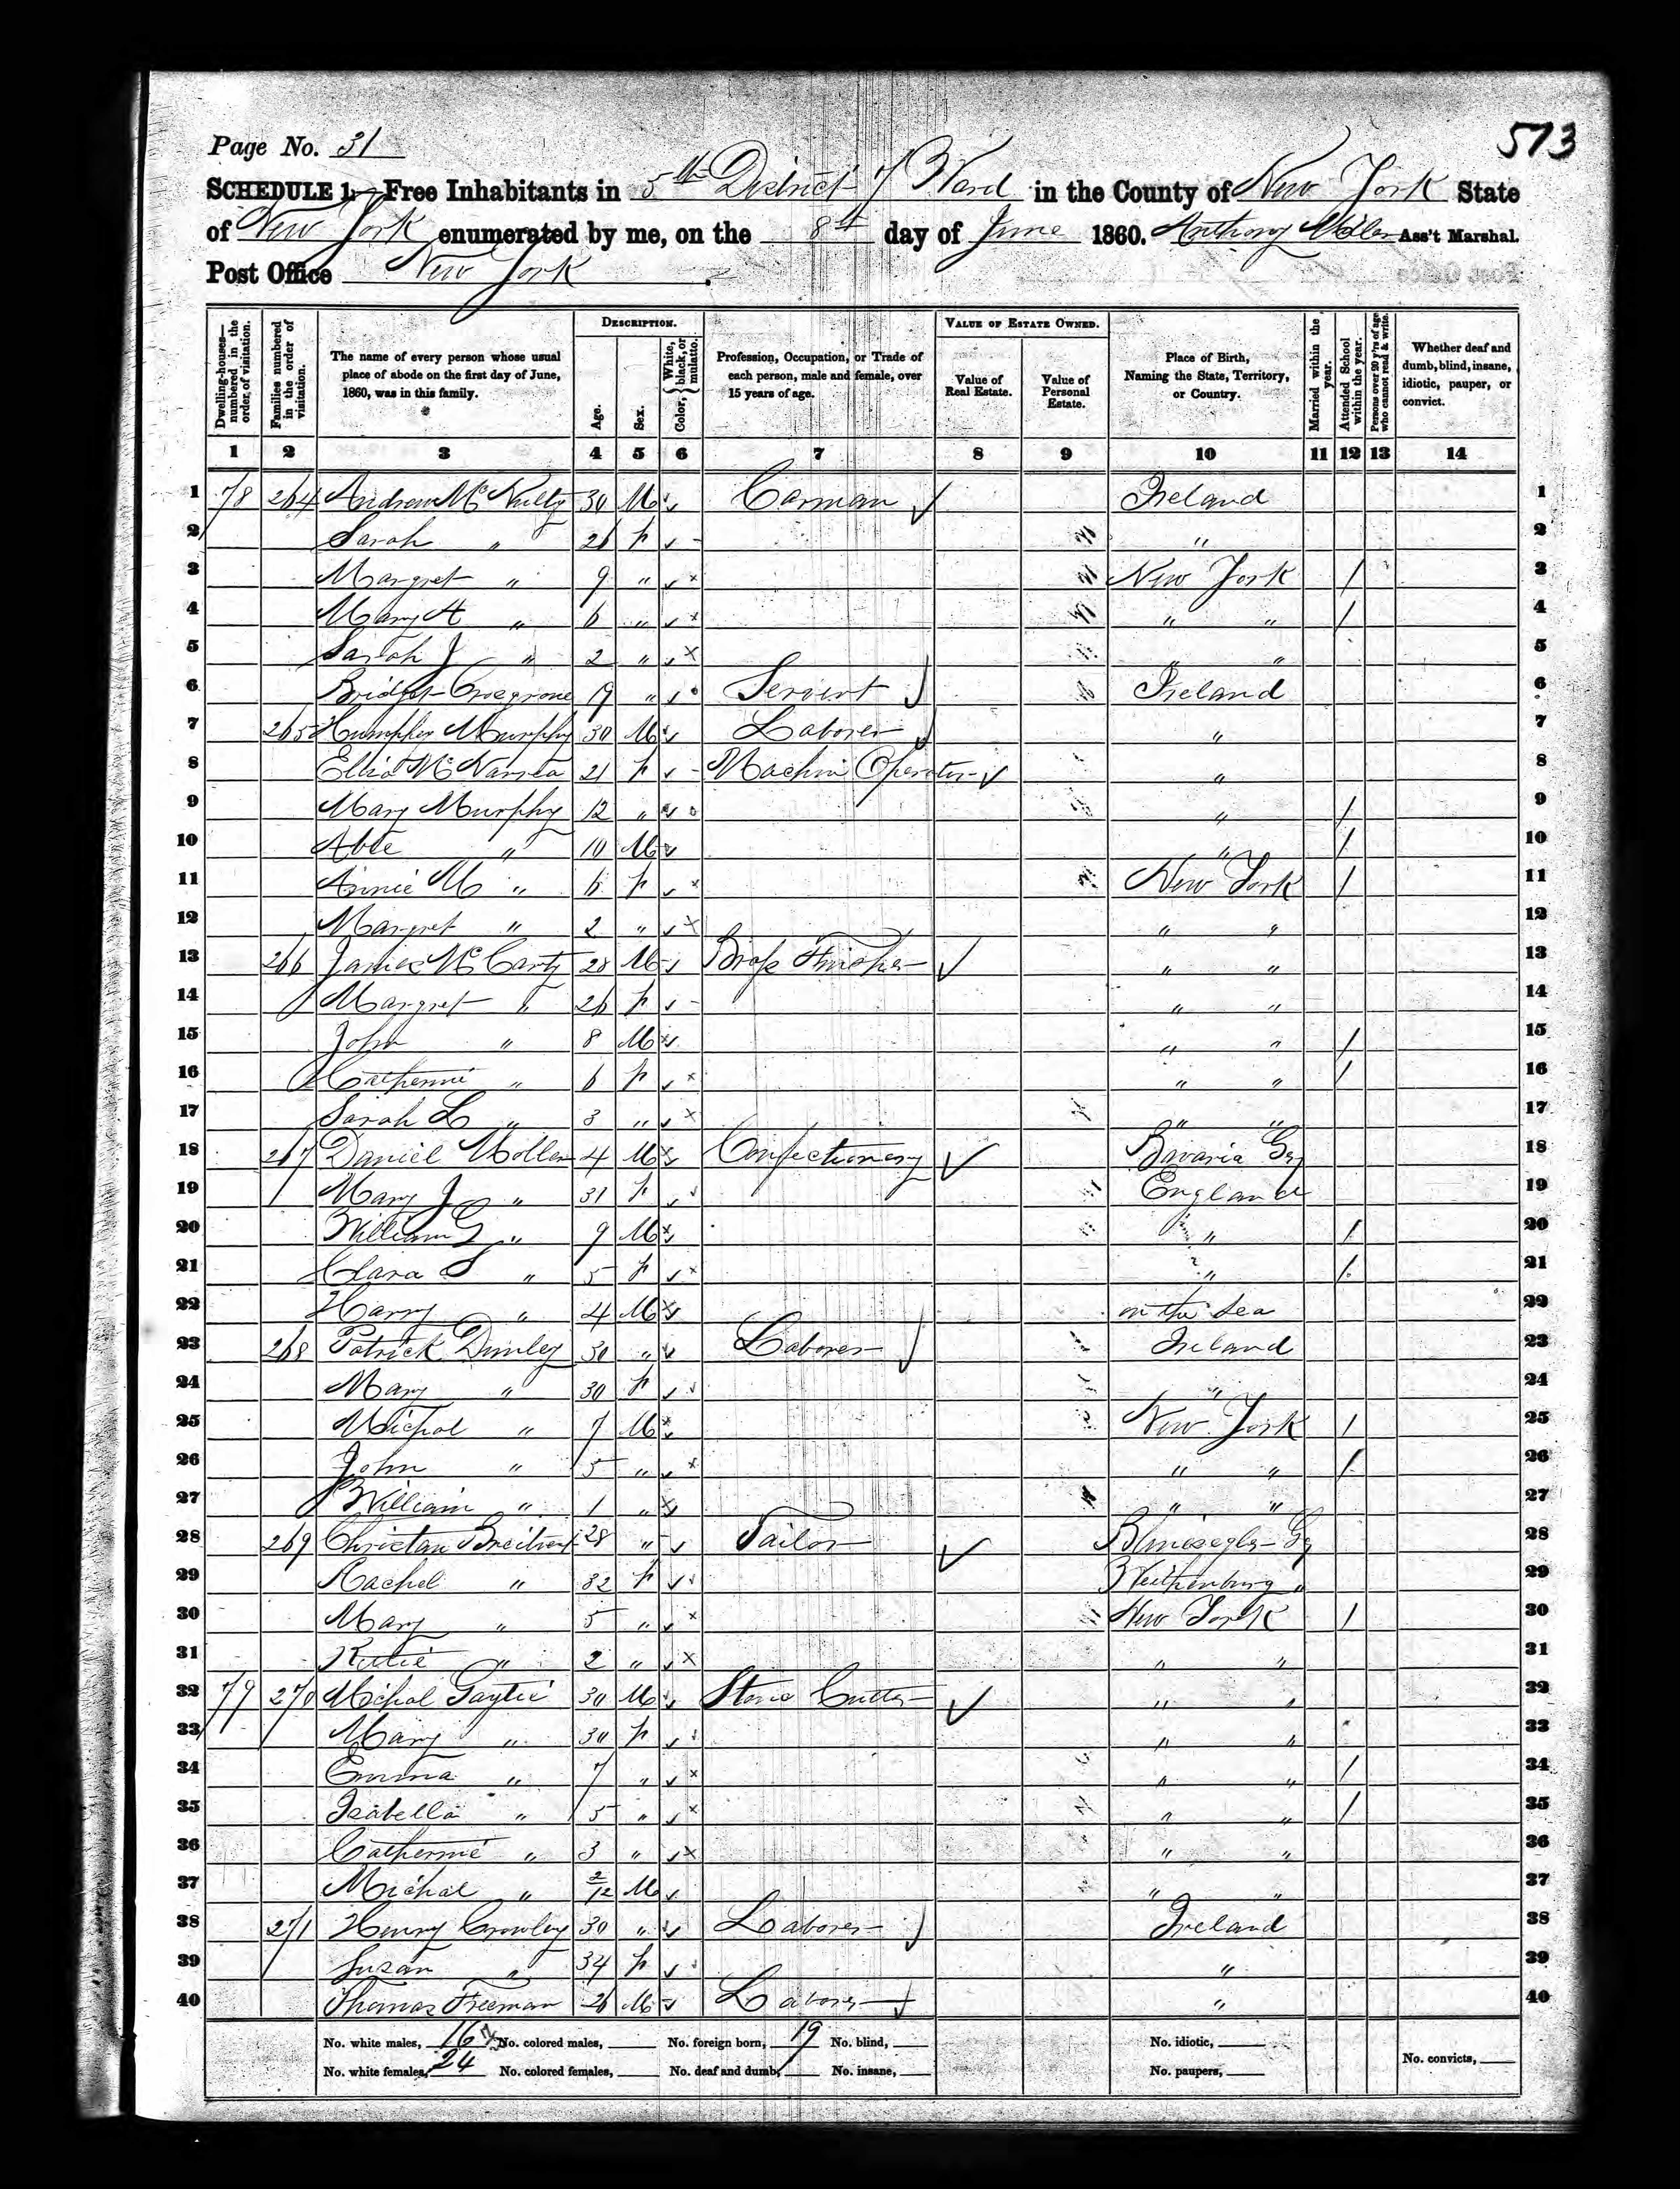 573
Page No. 31
SCHEDULE 1.—Free Inhabitants in 5th District 7 Ward in the County of New York State
of New York enumerated by me, on the 8th day of June 1860. Anthony Miller Ass't Marshal.
Post Office New York.
Dwelling-houses—numbered in the order of visitation.
Families numbered in the order of visitation.
The name of every person whose usual place of abode on the first day of June, 1860, was in this family.
DESCRIPTION.
Age.
Sex.
Color, { White, black, or mulatto.
Profession, Occupation, or Trade of each person, male and female, over 15 years of age.
VALUE OF ESTATE OWNED.
Value of Real Estate.
Value of Personal Estate.
Place of Birth, Naming the State, Territory, or Country.
Married within the year.
Attended School within the year.
Persons over 20 y'rs of age who cannot read & write.
Whether deaf and dumb, blind, insane, idiotic, pauper, or convict.
1 2 3 4 5 6 7 8 9 10 11 12 13 14
1 78 264 Andrew McNulty 30 M Carman Ireland 1
2 Sarah " 26 F " 2
3 Margret " 9 " New York / 3
4 Mary A " 6 " " " / 4
5 Sarah J " 2 " " " 5
6 Bridget 19 " Servent Ireland 6
7 265 Humphry Murphy 30 M Laborer " 7
8 McNamea 21 F Machine Operator " 8
9 Mary Murphy 12 " " / 9
10 Able " 10 M " / 10
11 Annie M " 6 F New York / 11
12 Margret " 2 " " " 12
13 266 James McCarty 28 M Brass Finisher " " 13
14 Margret " 26 F " " 14
15 John " 8 M " " / 15
16 Catherine " 6 F " " / 16
17 Sarah L " 3 " " " 17
18 267 Daniel 4 M Confectionery Bavaria Gy 18
19 Mary J " 31 F England 19
20 William G " 9 M " / 20
21 Clara S " 5 F " / 21
22 Harry " 4 M on the Sea 22
23 268 Patrick 30 " Laborer Ireland 23
24 Mary " 30 F " 24
25 Michal " 7 M New York / 25
26 John " 5 " " " / 26
27 William " 1 " " " 27
28 269 Christan 28 " Tailor Gy 28
29 Rachel " 32 F " 29
30 Mary " 5 " New York / 30
31 Katie " 2 " " " 31
32 79 270 Michal 30 M Stone Cutter " " 32
33 Mary " 30 F " " 33
34 Emma " 7 " " " / 34
35 Isabella " 5 " " " / 35
36 Catherine " 3 " " " 36
37 Michal " 2/12 M " " 37
38 271 Henry Crowley 30 " Laborer Ireland 38
39 Suzan " 34 F " 39
40 Thomas Freeman 26 M Laborer " 40
No. white males, 16 No. colored males, No. foreign born, 19 No. blind, No. idiotic,
No. white females, 24 No. colored females, No. deaf and dumb, No. insane, No. paupers, No. convicts,